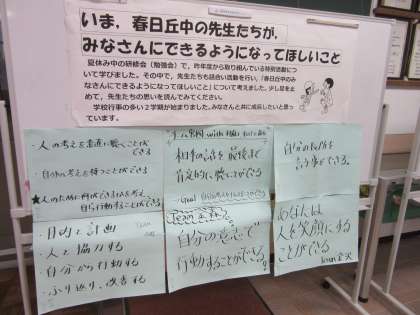 いま,春日丘中の先生たちが,
みなさんにできるようになってほしいこと
夏休み中の研修会(勉強会)で,昨年度から取り組んでいる特別活動につい
て学びました。その中で,先生たちも話合い活動を行い,「春日丘中のみ
なさんにできるようになってほしいこと」について考えました。少し足を止
めて,先生たちの思いを読んでみてください。
学校行事の多い2学期が始まりました。みなさんと共に成長したいと思っ
ています。
・人の考えを素直に聴くことが
できる
・自分の考えを持つことができる
★人のために何ができるかを考え、
自ら行動することができる
・目的と計画
・人と協力する
・自分から行動する
・ふり返り、改善する
相手の話を最後まで
肯定的に聴くことができる
自分の意志で
行動することができる。
自分の
言う事ができる。
あなたは
人を笑顔にする
ことができる